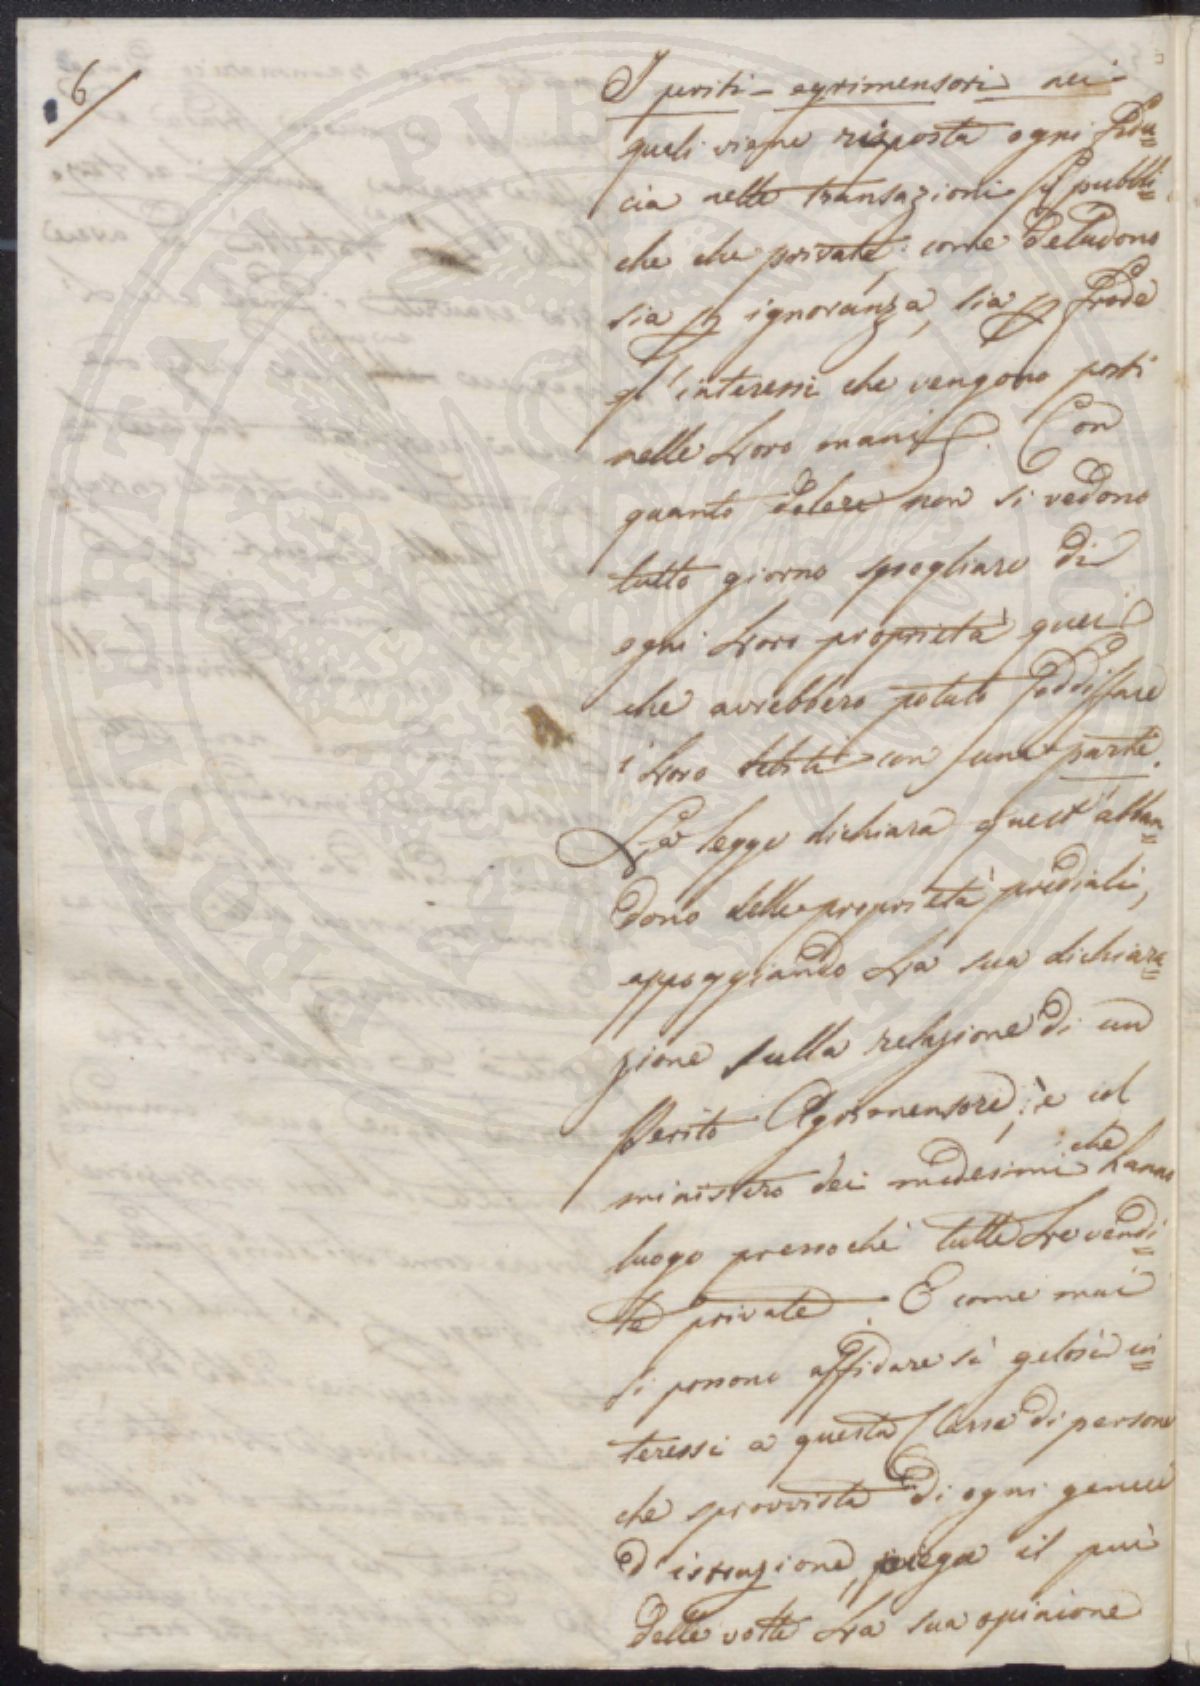 6/
I periti-agrimensori nei
quali viene risposta ogni fidu=
cia nelle transazioni sì pubbli=
che che private; come deludono
sia per ignoranza, sia per frode
gl'interessi che vengono posti
nelle loro mani. Con
quanto dolore non si vedono
tutto giorno spogliare di
ogni loro proprietà quei
che avrebbero potuto soddisfare
i loro debiti con una parte.
La legge dichiara quest'abban=
dono delle proprietà prediali,
appoggiando la sua dichiara=
zione sulla relazione di un
Perito Agrimensore; e col
ministero dei medesimi che hanno
luogo pressochè tutte le vendi=
te private. E come mai
si possono affidare sì gelosi in=
teressi a questa Classe di persone
che sprovvista di ogni genere
d'istruzione, piega il più
delle volte la sua opinione
PVBLICA
PROSPERITATI